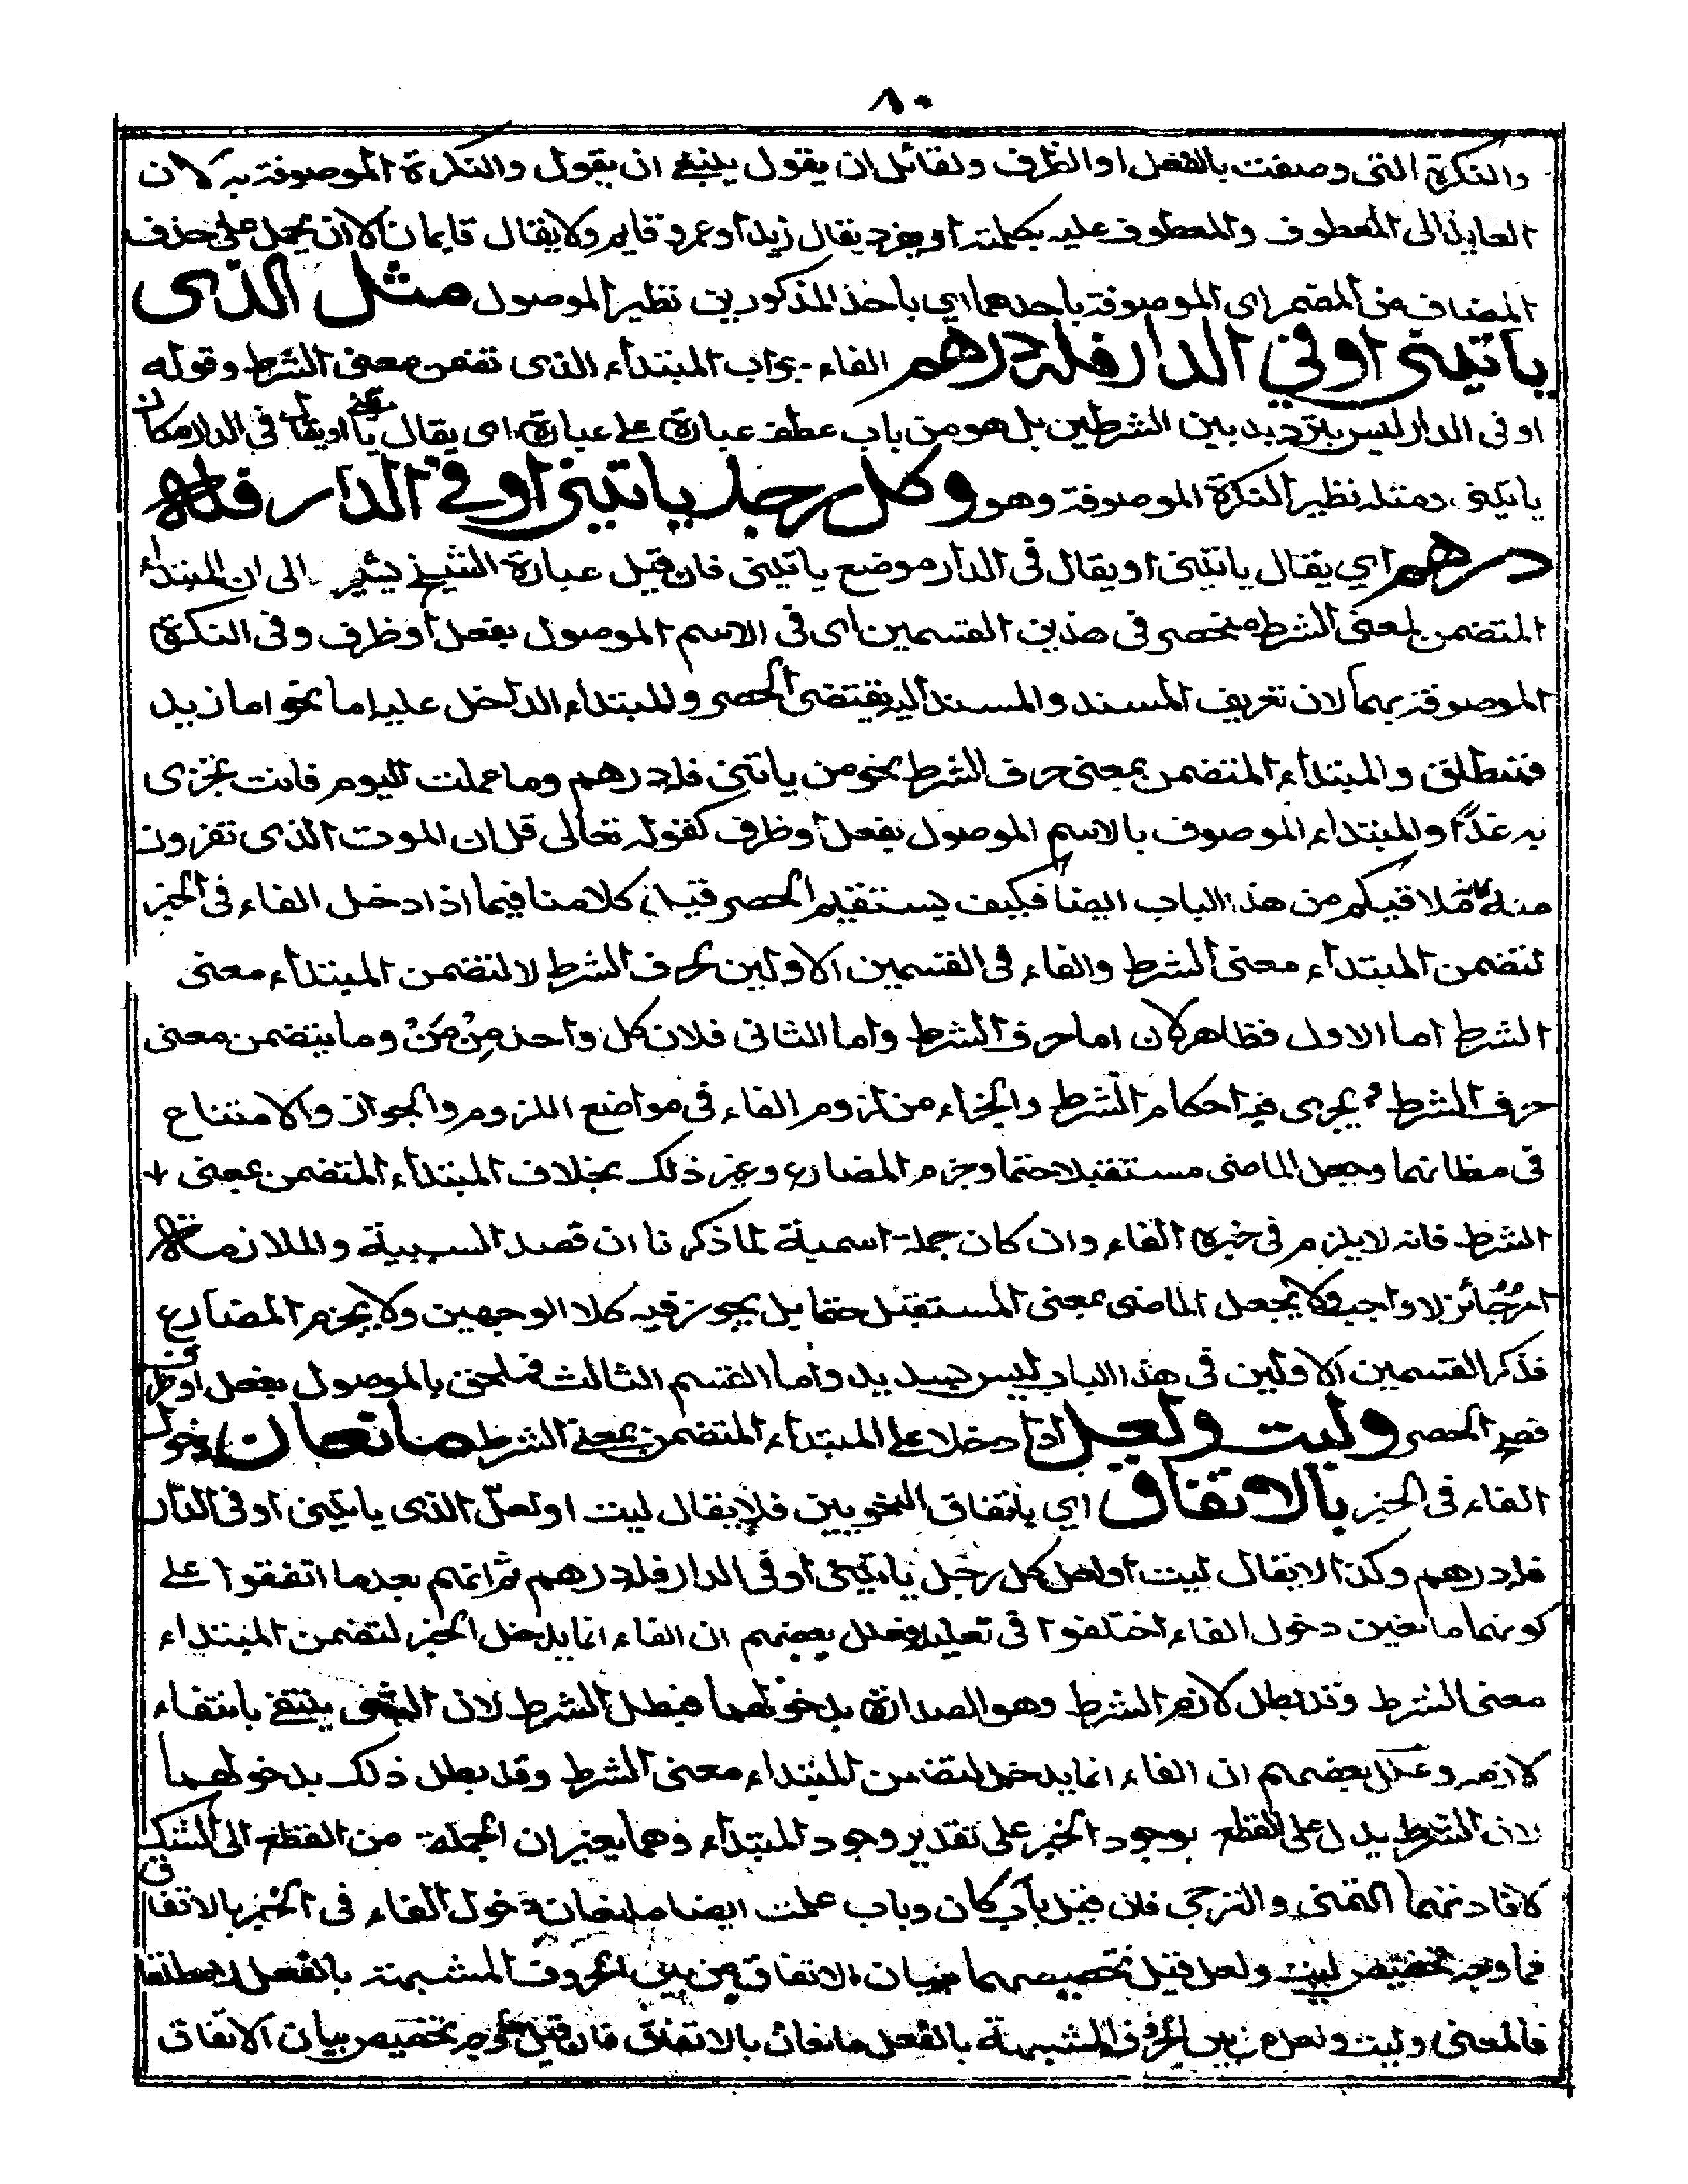 ٨٠
والنكرة التى وصفت بالفعل او الظرف ولقائل ان يقول ينبغى ان يقول والنكرة الموصوفة به لان
العايد الى المعطوف والمعطوف عليه بكلمته او يفرد يقال زيد او عمرو قايم ولا يقال قايمان الا ان يحمل على حذف
المضاف من المضمر اى الموصوفة باحدهما اي باحد المذكورين نظير الموصول مثل الذى
ياتينى او فى الدار فله درهم الفاء جواب المبتداء الذى تضمن معنى الشرط وقوله
او فى الدار ليس بترديد بين الشرطين بل هو من باب عطف عبارة على عبارة اى يقال ياتينى او يقال فى الدار مكان
ياتينى ومثله نظير النكرة الموصوفة وهو وكل رجل ياتينى او فى الدار فله
درهم اي يقال ياتينى او يقال فى الدار موضع ياتينى فان قيل عبارة الشيخ يشير الى ان المبتداء
المتضمن لمعنى الشرط منحصر فى هذين القسمين اى فى الاسم الموصول بفعل او ظرف وفى النكرة
الموصوفة بهما لان تعريف المسند والمسند اليه يقتضى الحصر وللمبتداء الداخل عليه اما نحو اما زيد
فمنطلق والمبتداء المتضمن بمعنى حرف الشرط نحو من ياتنى فله درهم وما عملت اليوم فانت تجزى
به غدًا والمبتداء الموصوف بالاسم الموصول بفعل او ظرف كقوله تعالى قل ان الموت الذى تفرون
منه فانه ملاقيكم من هذا الباب ايضا فكيف يستقيم الحصر قيل كلامنا فيما اذا دخل الفاء فى الخبر
لتضمن المبتداء معنى الشرط والفاء فى القسمين الاولين بحرف الشرط لا لتضمن المبتداء معنى
الشرط اما الاول فظاهر لان اما حرف الشرط واما الثانى فلان كل واحد مِنْ مَنْ وما يتضمن معنى
حرف الشرط و يجرى فيه احكام الشرط والجزاء من لزوم الفاء فى مواضع اللزوم والجواز والامتناع
فى مظانهما وجعل الماضى مستقبلا حتما وجزم المضارع وغير ذلك بخلاف المبتداء المتضمن بمعنى
الشرط فانه لا يلزم فى خبره الفاء وان كان جملة اسمية لما ذكرنا ان قصد السببية والملازمة
امر جائز لا واجب ولا يجعل الماضى بمعنى المستقبل حتما بل يجوز فيه كلا الوجهين ولا يجزم المضارع
فذكر القسمين الاولين فى هذا الباب ليس بسديد واما القسم الثالث فملحق بالموصول بفعل او ظرف
قصد الحصر وليت ولعل اذا دخلا على المبتداء المتضمن بمعنى الشرط مانعان دخول
الفاء فى الخبر بالاتفاق اي باتفاق النحويين فلا يقال ليت او لعل الذى ياتينى او فى الدار
فله درهم وكذا لا يقال ليت او لعل كل رجل ياتينى او فى الدار فله درهم ثم انهم بعد ما اتفقوا على
كونهما مانعين دخول الفاء اختلفوا فى تعليله فعلل بعضهم ان الفاء انما يدخل الخبر لتضمن المبتداء
معنى الشرط وقد بطل لازم الشرط وهو الصدارة بدخولهما فبطل الشرط لان الشىء ينتفى بانتفاء
لازمه وعلل بعضهم ان الفاء انما يدخل لتضمن المبتداء معنى الشرط وقد بطل ذلك بدخولهما
لان الشرط يدل على القطع بوجود الخبر على تقدير وجود المبتداء وهما يغيران الجملة من القطع الى الشك
لافادتهما التمنى والترجى فان قيل باب كان وباب علمت ايضا مانعان دخول الفاء فى الخبر بالاتفاق
فما وجه تخصيص ليت ولعل قيل تخصيصهما ببيان الاتفاق من بين الحروف المشبهة بالفعل لا مطلقا
فالمعنى وليت ولعل من بين الحروف المشبهة بالفعل مانعان بالاتفاق فان قيل ما وجه تخصيص بيان الاتفاق